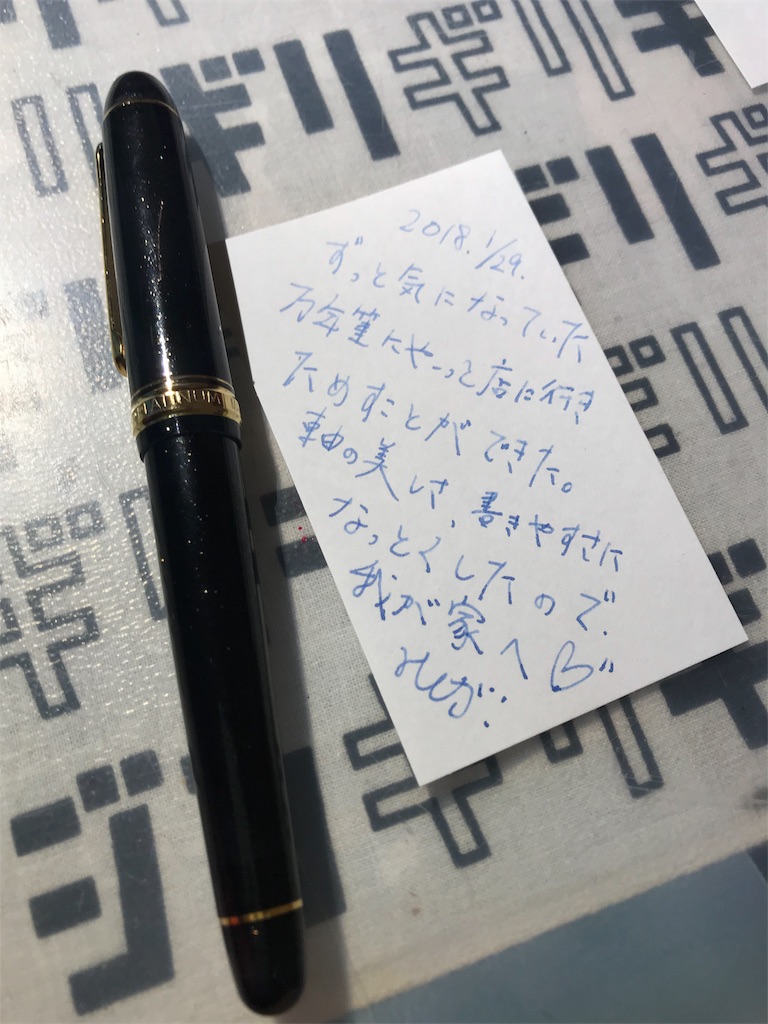 2018.1/29.
ずっと気になっていた
万年筆にやっと店に行き
ためすことができた。
軸の美しさ、書きやすさに
なっとくしたので、
我が家へ♡"
PLATINUM
ギリギリ
ギリギリ
ギリ
ジ